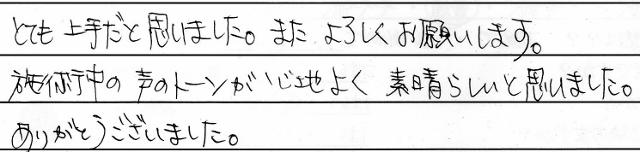 とても上手だと思いました。また よろしくお願いします。
施術中の 声のトーンが心地よく 素晴らしいと思いました。
ありがとうございました。